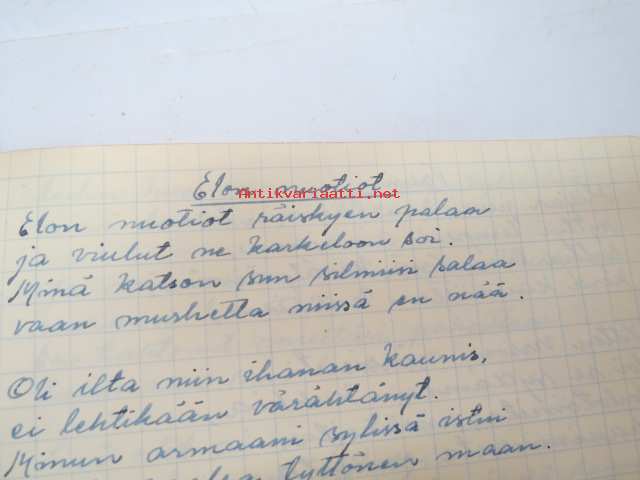 Elon nuotiot
Antikvariaatti.net
Elon nuotiot räiskyen palaa
ja viulut ne karkeloon soi.
Minä katson sun silmiisi salaa
vaan murhetta niissä en nää.
Oli ilta niin ihanan kaunis,
ei lehtikään värähtänyt.
Minun armaani sylissä istui
tyttönen maan.